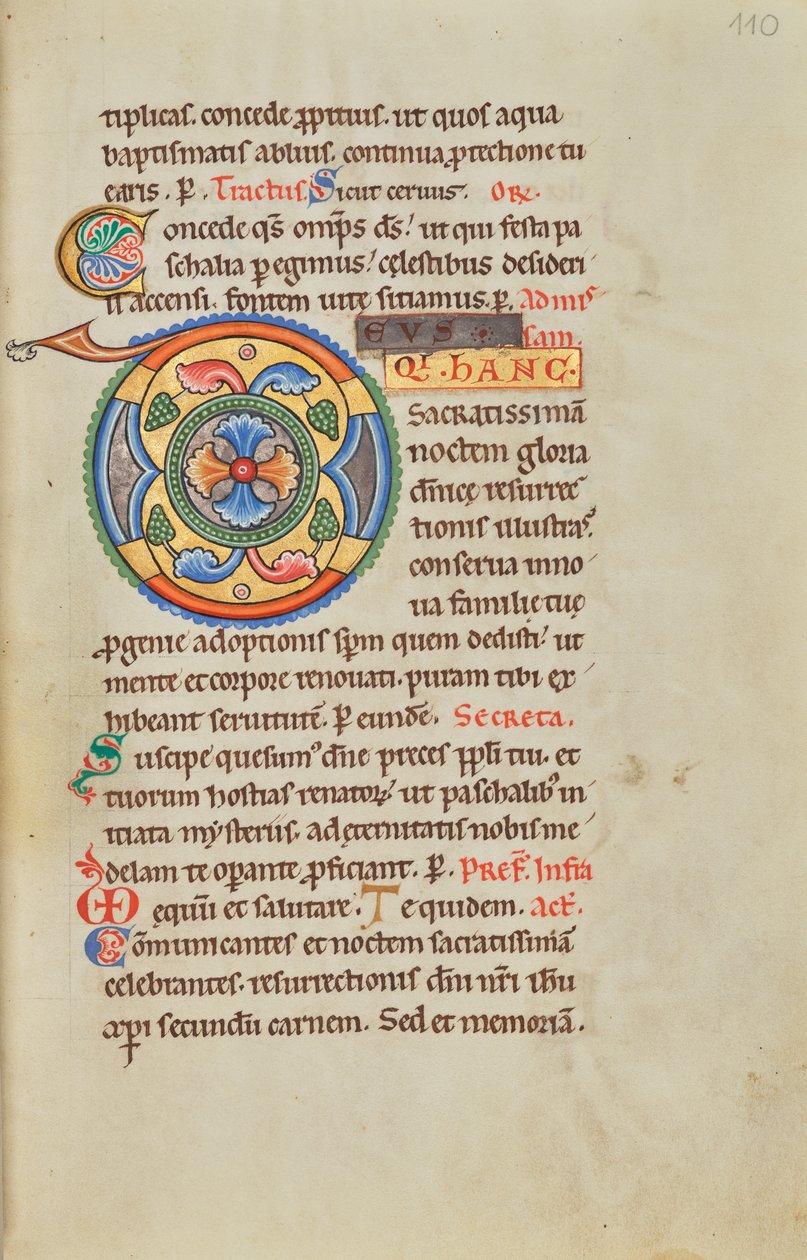 110
tiplicas. concede ꝓpitius. ut quos aqua
baptismatis abluis. continua ꝓtectione tu
earis. P. Tractus. Sicut ceruus. OR.
Concede qs̄ omp̄s ds̄! ut qui festa pa
schalia ꝑegimus! cęlestibus desideri
is accensi. fontem uitę sitiamus. P. Ad mis
DEVS sam.
QI HANC.
SACRATISSIMĀ
noctem gloria
dn̄icę resurrec
tionis illustras.
conserua in no
ua familię tuę
ꝓgenie adoptionis sp̄m quem dedisti! ut
mente et corpore renouati. puram tibi ex
hibeant seruitutē. P eundē. SECRETA.
Suscipe quesumꝰ dn̄e preces pp̄li tui. et
tuorum hostias renatoꝝ! ut paschalibꝰ in
itiata mẏsteriis. ad ęternitatis nobis me
delam te oꝑante ꝓficiant. P. PREF. Infra
VD ęquū et salutare. Te quidem. Act̄.
Cōmunicantes et noctem sacratissimā
celebrantes. resurrectionis dn̄i nr̄i ih̄u
xp̄i secundū carnem. Sed et memoriā.